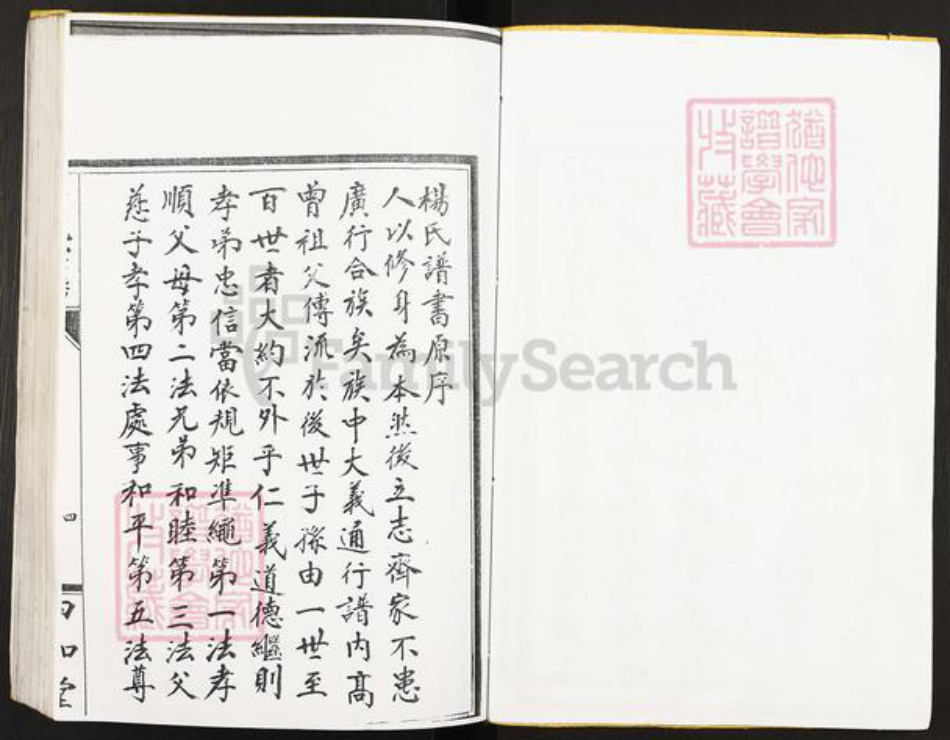 楊氏譜書原序
人以修身為本然後立志齊家不患
廣行合族矣族中大義通行譜內高
曾祖父傳流於後世子孫由一世至
百世者大約不外乎仁義道德繼則
孝弟忠信當依規矩準繩第一法孝
順父母第二法兄弟和睦第三法父
慈子孝第四法處事和平第五法尊
四
譜學會
收藏
FamilySearch